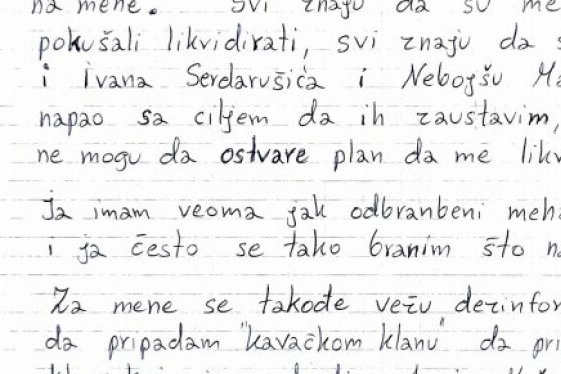 na mene. Svi znaju da su me
pokušali likvidirati, svi znaju da s
i Ivana Serdarušića i Nebojšu Ma
napao sa ciljem da ih zaustavim,
ne mogu da ostvare plan da me likv
Ja imam veoma jak odbranbeni meha
i ja često se tako branim što na
Za mene se takođe vežu dezinfor
da pripadam "kavačkom klanu" da pri